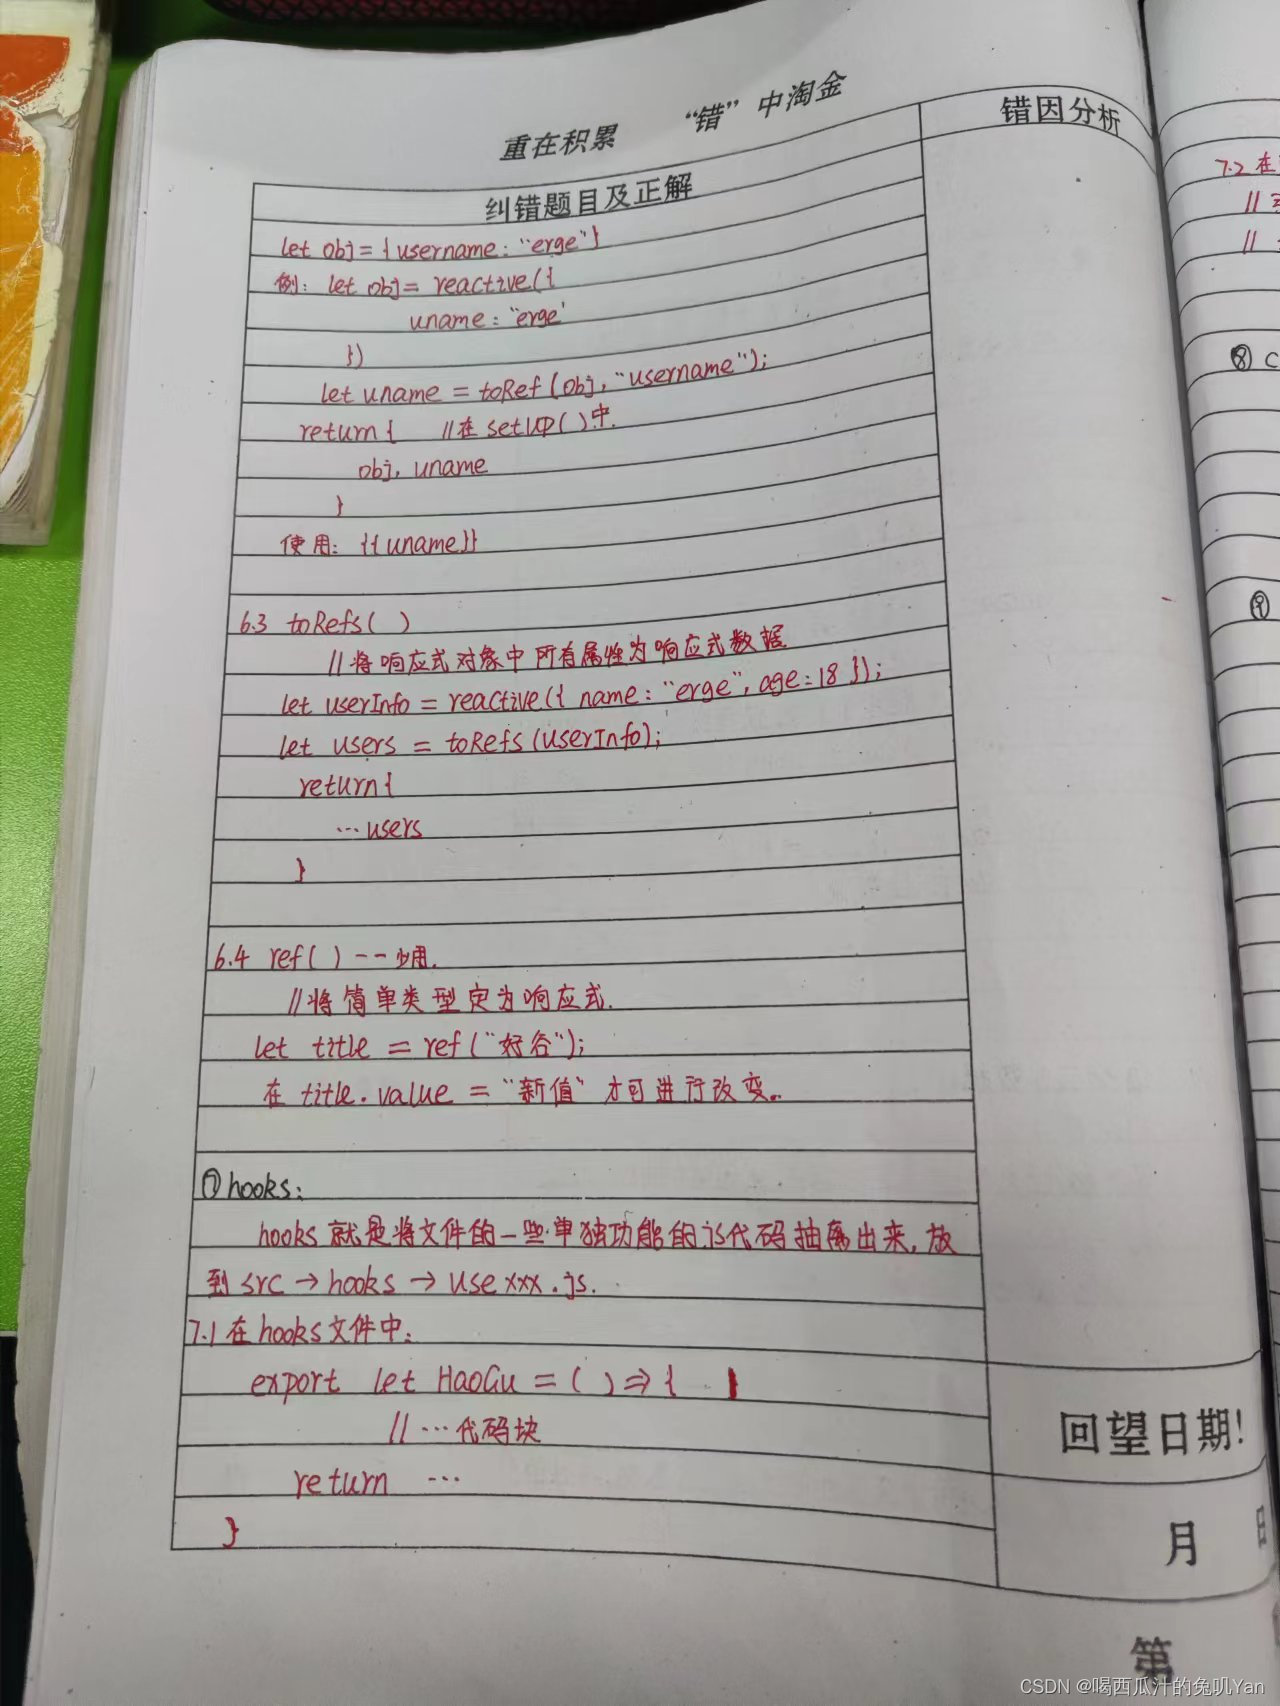 重在积累 “错”中淘金
纠错题目及正解
错因分析
let obj = {username: "erge"}
例: let obj = reactive({
uname: "erge'
})
let uname = toRef(obj, "username");
return{ //在 setup()中.
obj, uname
}
使用: {{uname}}
6.3 toRefs( )
//将响应式对象中所有属性为响应式数据
let userInfo = reactive({ name: "erge", age: 18 });
let users = toRefs(userInfo);
return{
...users
}
6.4 ref( ) -- 少用.
//将简单类型定为响应式.
let title = ref("好谷");
在 title.value = "新值" 才可进行改变..
⑦ hooks:
hooks 就是将文件的一些单独功能的js代码抽离出来, 放
到 src → hooks → use xxx .js.
7.1 在 hooks 文件中:
export let HaoGu = ( ) => {
// ... 代码块
return ...
}
回望日期!
月 日
第
7.2 在
//
//
⑧ C
⑨
CSDN @喝西瓜汁的兔叽Yan